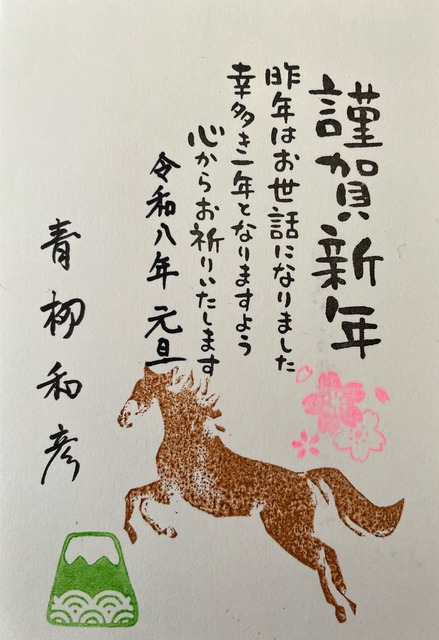 謹賀新年
昨年はお世話になりました
幸多き一年となりますよう
心からお祈りいたします
令和八年 元旦
青柳和彦